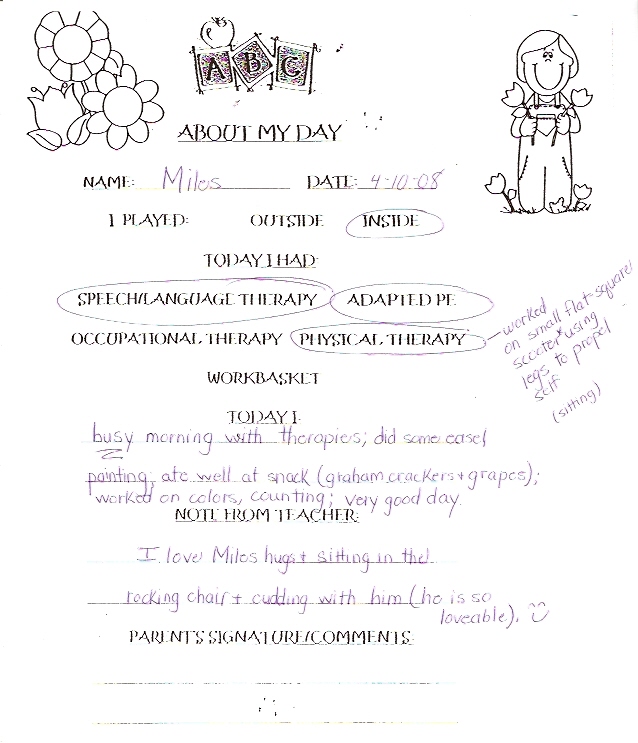 A B C
ABOUT MY DAY
NAME: Milos DATE: 4-10-08
I PLAYED: OUTSIDE INSIDE
TODAY I HAD:
SPEECH/LANGUAGE THERAPY ADAPTED PE
OCCUPATIONAL THERAPY PHYSICAL THERAPY
worked
on small flat square
scooter using
legs to propel
self
(sitting)
WORKBASKET
TODAY I
busy morning with therapies; did some easel
painting; ate well at snack (graham crackers + grapes);
worked on colors, counting; very good day.
NOTE FROM TEACHER:
I love Milos hugs + sitting in the
rocking chair + cudding with him (he is so
loveable). :)
PARENT'S SIGNATURE/COMMENTS: